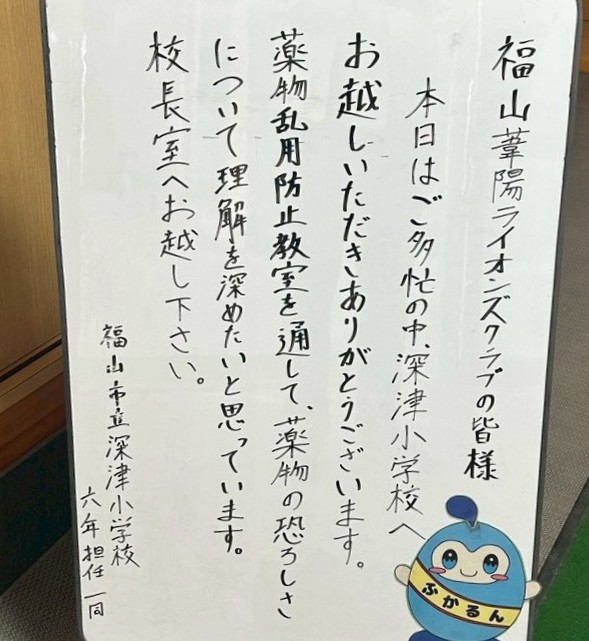 福山葦陽ライオンズクラブの皆様
本日はご多忙の中、深津小学校へ
お越しいただきありがとうございます。
薬物乱用防止教室を通して、薬物の恐ろしさ
について理解を深めたいと思っています。
校長室へお越し下さい。
福山市立深津小学校
六年担任一同
ふかるん